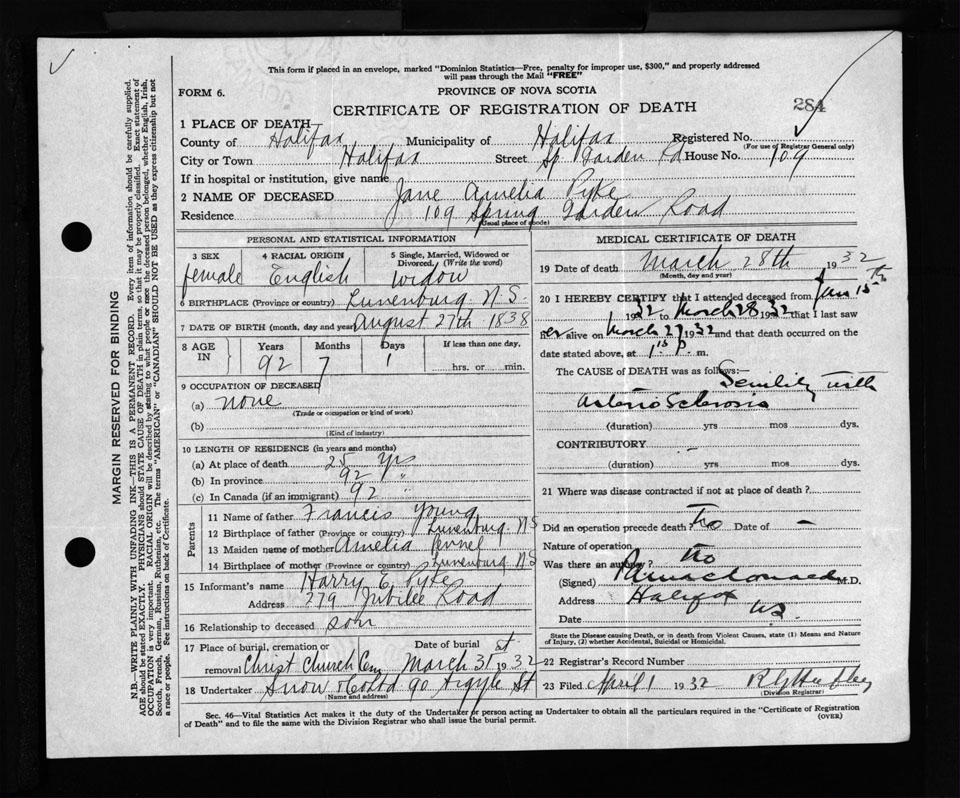 This form if placed in an envelope, marked "Dominion Statistics—Free, penalty for improper use, $300," and properly addressed
will pass through the Mail "FREE"
FORM 6.
PROVINCE OF NOVA SCOTIA
CERTIFICATE OF REGISTRATION OF DEATH
284
1 PLACE OF DEATH
County of Halifax Municipality of Halifax Registered No.
(For use of Registrar General only)
City or Town Halifax Street Sp Garden Rd House No. 109
If in hospital or institution, give name
2 NAME OF DECEASED Jane Amelia Pyke
Residence 109 Spring Garden Road
(Usual place of abode)
PERSONAL AND STATISTICAL INFORMATION
3 SEX female
4 RACIAL ORIGIN English
5 Single, Married, Widowed or Divorced (Write the word) Widow
6 BIRTHPLACE (Province or country) Lunenburg N.S.
7 DATE OF BIRTH (month, day and year) August 27th 1838
8 AGE IN Years 92 Months 7 Days 1 If less than one day, hrs. or min.
9 OCCUPATION OF DECEASED
(a) none
(Trade or occupation or kind of work)
(b)
(Kind of industry)
10 LENGTH OF RESIDENCE (in years and months)
(a) At place of death 25 yrs
(b) In province 92 "
(c) In Canada (if an immigrant) 92 "
Parents
11 Name of father Francis Young
12 Birthplace of father (Province or country) Lunenburg. N.S
13 Maiden name of mother Amelia
14 Birthplace of mother (Province or country) Lunenburg N.S
15 Informant's name Harry E. Pyke
Address 279 Jubilee Road
16 Relationship to deceased son
17 Place of burial, cremation or removal Christ Church Cem Date of burial March 31st 1932
18 Undertaker Snow & Co Ltd 90 Argyle St
(Name and address)
MEDICAL CERTIFICATE OF DEATH
19 Date of death March 28th 1932
(Month, day and year)
20 I HEREBY CERTIFY that I attended deceased from Jan 15th
1932 to March 28 1932 that I last saw
her alive on March 27 1932 and that death occurred on
date stated above, at 1.15 P. m.
The CAUSE of DEATH was as follows:— Senility with
Arterio Sclerosis
(duration) yrs mos dys.
CONTRIBUTORY
(duration) yrs mos dys.
21 Where was disease contracted if not at place of death?
Did an operation precede death? No Date of –
Nature of operation
Was there an autopsy? No
(Signed) Macdonald M.D.
Address Halifax
Date N.S.
State the Disease causing Death, or in death from Violent Causes, state (1) Means and Nature
of Injury, (2) whether Accidental, Suicidal or Homicidal.
22 Registrar's Record Number
23 Filed April 1 1932
(Division Registrar)
Sec. 46—Vital Statistics Act makes it the duty of the Undertaker or person acting as Undertaker to obtain all the particulars required in the "Certificate of Registration
of Death" and to file the same with the Division Registrar who shall issue the burial permit.
(OVER)
MARGIN RESERVED FOR BINDING
N.B.—WRITE PLAINLY WITH UNFADING INK—THIS IS A PERMANENT RECORD. Every item of information should be carefully supplied.
AGE should be stated EXACTLY. PHYSICIANS should STATE CAUSE OF DEATH in plain terms, so that it may be properly classified. Exact statement of
OCCUPATION is very important. RACIAL ORIGIN will be described by stating to what people or race the deceased person belonged, whether English, Irish,
Scotch, French, German, Russian, Ruthenian, etc. The terms "AMERICAN" or "CANADIAN" SHOULD NOT BE USED as they express citizenship but not
a race or people. See instructions on back of Certificate.